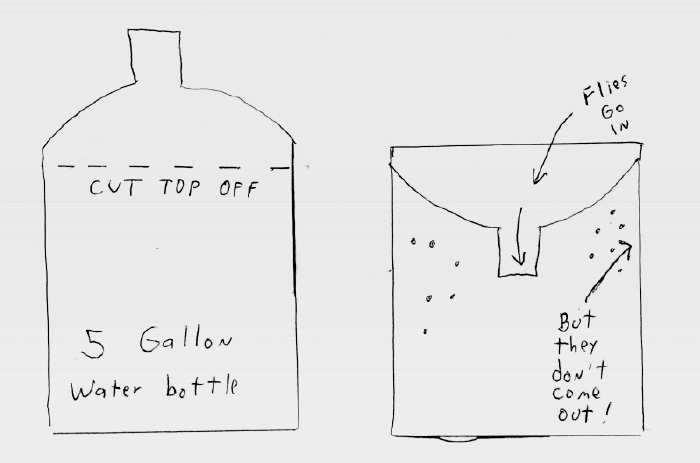 CUT TOP OFF
5 Gallon
Water bottle
Flies
GO
IN
But
they
don't
come
out!